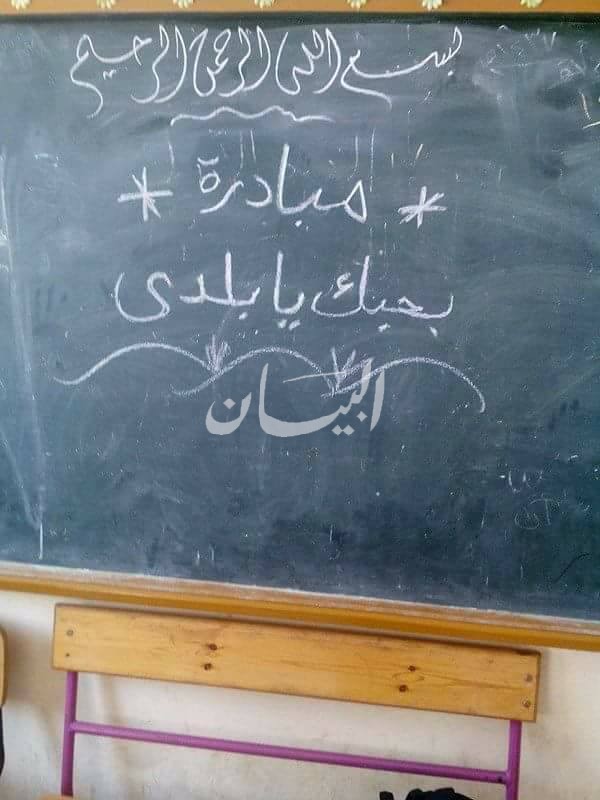 بسم الله الرحمن الرحيم
* مبادرة *
بحبك يا بلدى
البيان